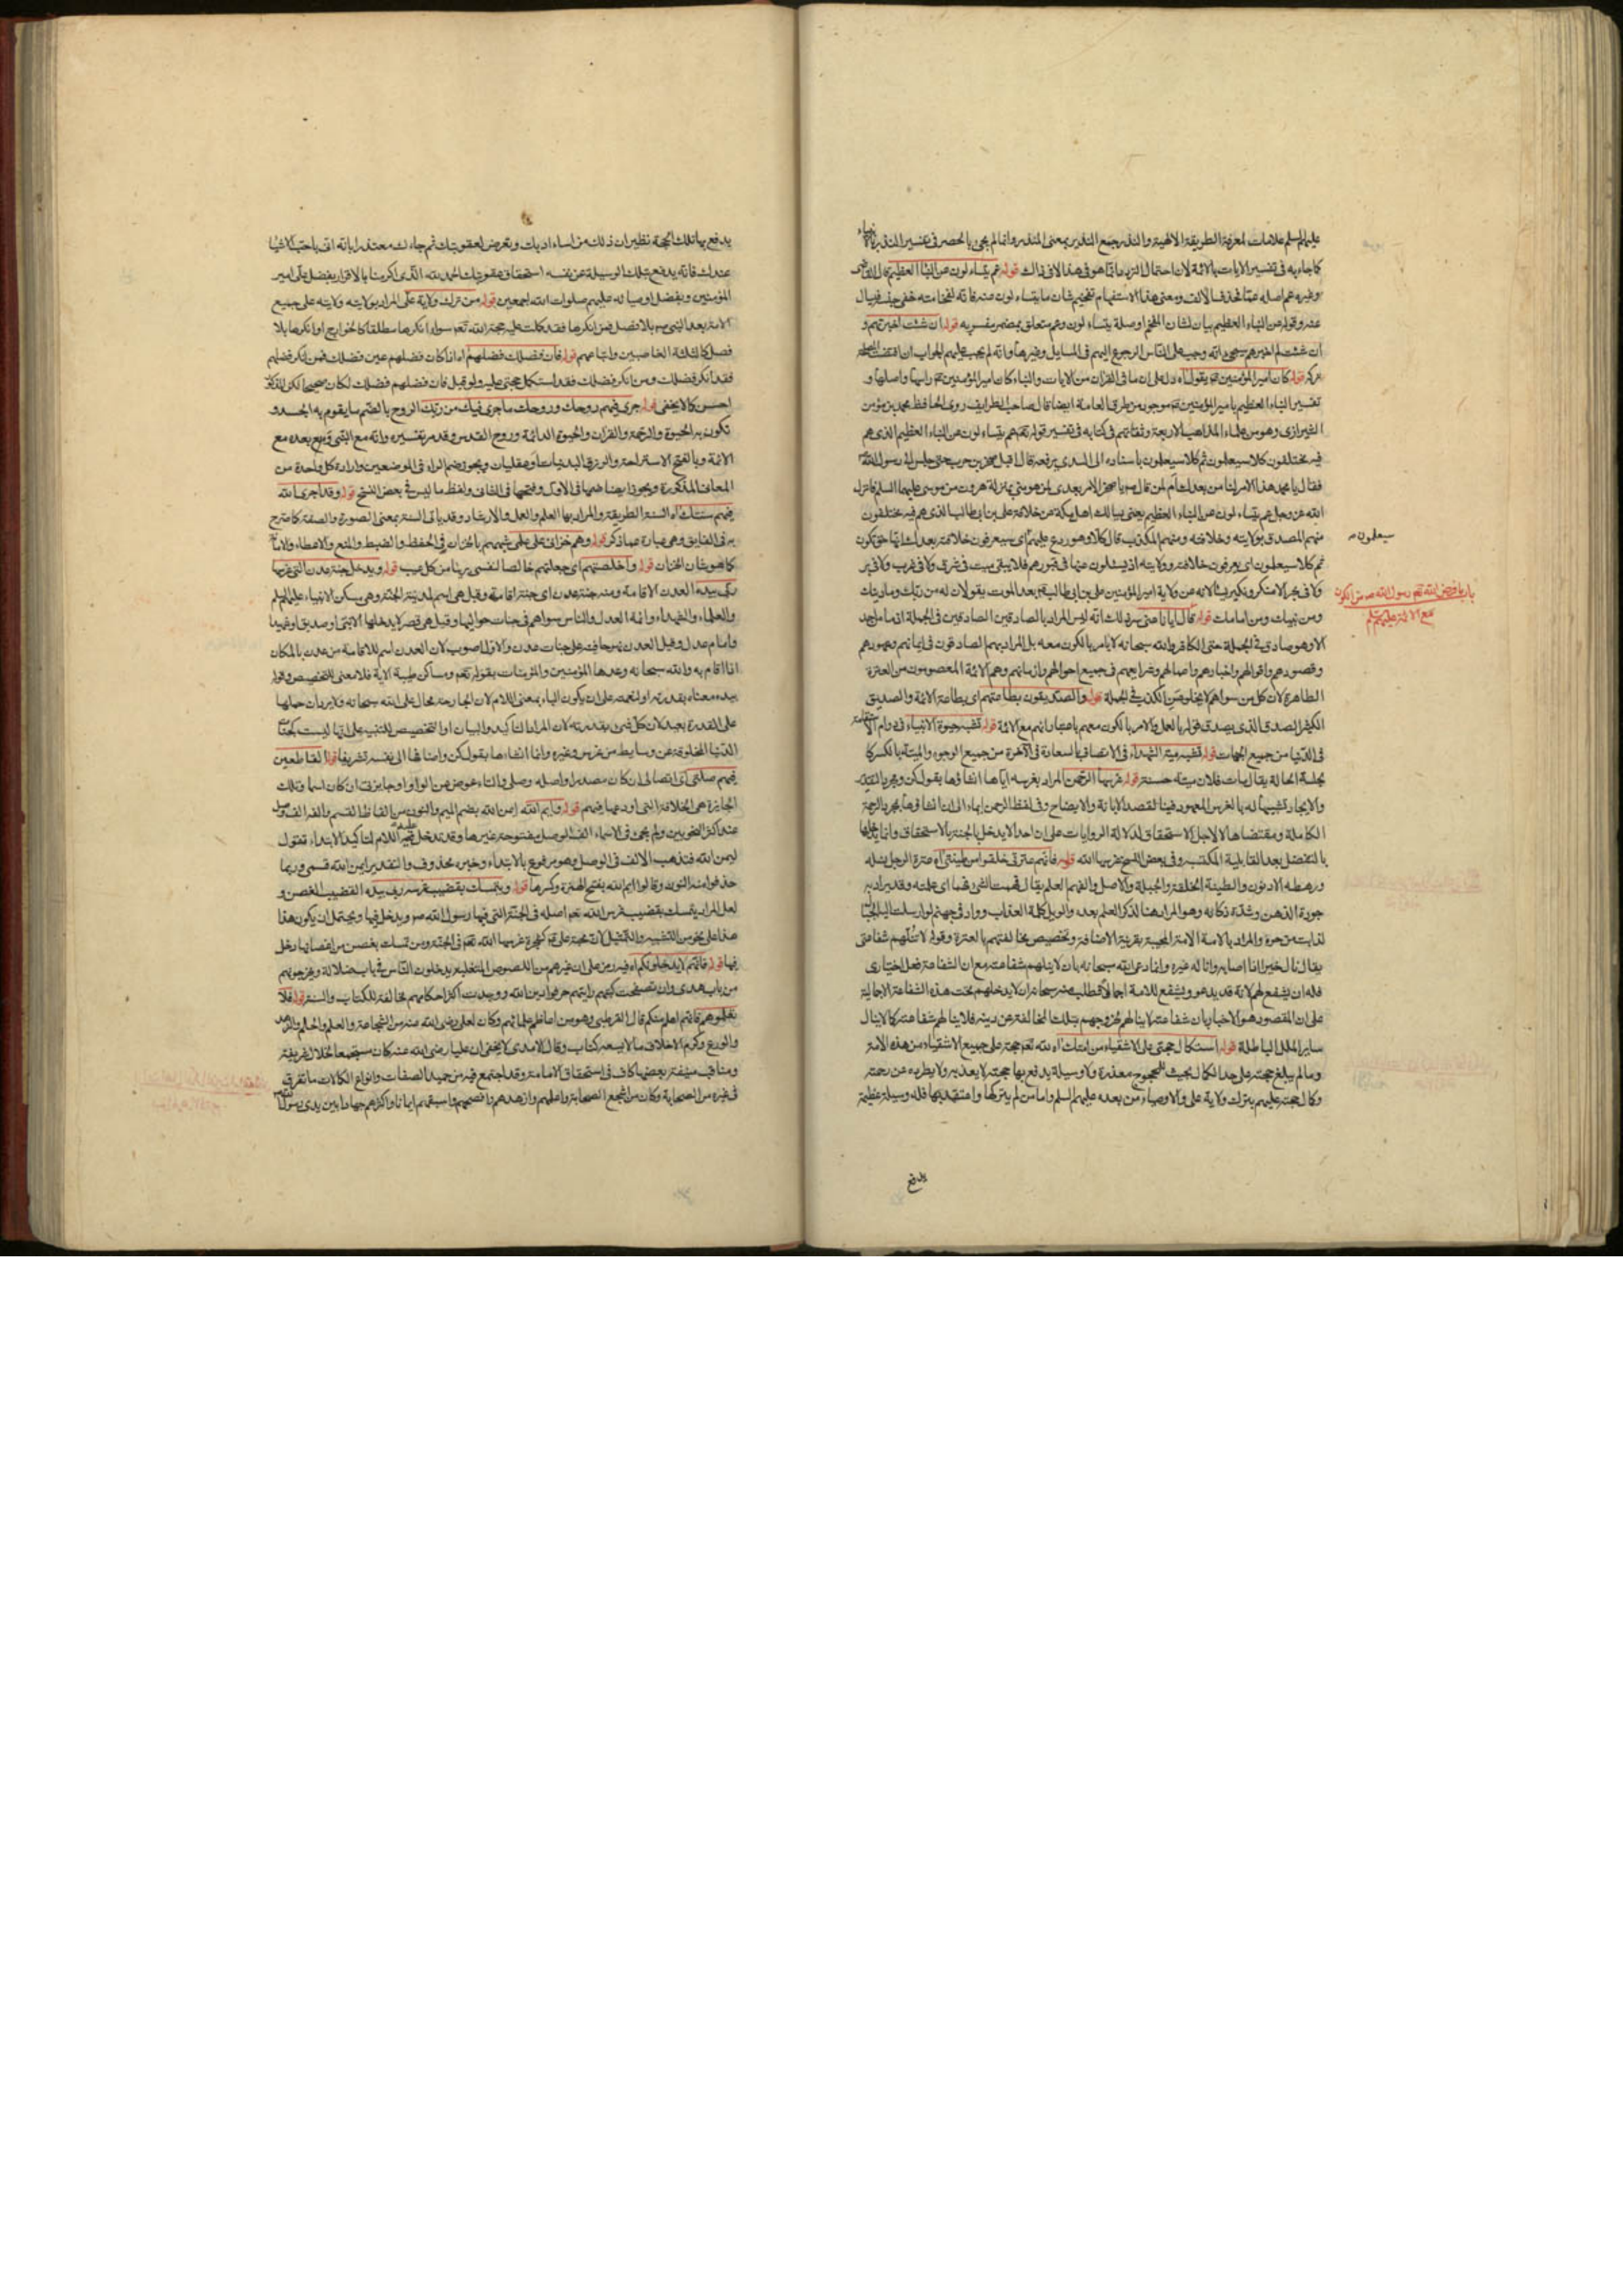 عليهم السلم علامات لمعرفة الطريقة الالهية والنذر جمع النذير بمعنى المنذر وانما لم يجئ بالحصر في تفسير النذر بالانبياء
كما جاء به في تفسير الايات بالائمة لان احتمال انما هو في هذا لا في ذاك قوله عم يتساءلون عن النباء العظيم قال القاضى
وغيره عم اصله عما فحذف الالف ومعنى هذا الاستفهام تفخيم شان ما يتساءلون عنه فانه لفخامته خفى جنسه فيسال
عنه وقوله عن النباء العظيم بيان لشان المفخم او صلة يتساءلون وعم متعلق بمضمر مفسر به قوله ان شئت اخبرتهم و
ان شئت لم اخبرهم انه وجب على الناس الرجوع اليهم في المسايل وغيرها وانه لم يجب عليهم الجواب ان اقتضت المصلحة
تركه قوله كان امير المؤمنين ع يقول اه دل على ان ما في القران من الايات والنباء كان امير المؤمنين ع راسها واصلها و
تفسير النباء العظيم بامير المؤمنين ع موجود من طرق العامة ايضا قال صاحب الطرايف روى الحافظ محمد بن مؤمن
الشيرازى وهو من علماء المذاهب الاربعة وثقاتهم في كتابه في تفسير قوله تعم عم يتساءلون عن النباء العظيم الذى هم
فيه مختلفون كلا سيعلمون ثم كلا سيعلمون باسناده الى السدى يرفعه قال اقبل صخر بن حرب حتى جلس الى رسول الله ص
فقال يا محمد هذا الامر لنا من بعدك ام لمن قال ص يا صخر الامر بعدى لمن هو منى بمنزلة هرون من موسى عليهما السلم فانزل
الله عز وجل عم يتساءلون عن النباء العظيم يعنى يسالك اهل مكة عن خلافة على بن ابى طالب الذى هم فيه مختلفون
منهم المصدق بولايته وخلافته ومنهم المكذب قال كلا وهو ردع عليهم اى سيعرفون خلافته بعدك انها حق تكون
سيعلمون
ثم كلا سيعلمون اى يعرفون خلافته وولايته اذ يسئلون عنها في قبورهم فلا يبقى ميت في شرق ولا في غرب ولا في بر
ولا في بحر الا منكر ونكير يسالانه عن ولاية امير المؤمنين على بن ابى طالب ع بعد الموت يقولان له من ربك وما دينك
باب ما فرض الله تعم ورسول الله ص من الكون
مع الائمة عليهم السلم
ومن نبيك ومن امامك قوله قال ايانا عنى بذلك انه ليس المراد بالصادقين الصادقين في الجملة اذ ما من احد
الا وهو صادق في الجملة حتى الكافر والله سبحانه لا يامر بالكون معه بل المراد بهم الصادقون في ايمانهم وعهودهم
وقصودهم واقوالهم واخبارهم واعمالهم وشرايعهم في جميع احوالهم وازمانهم وهم الائمة المعصومون من العترة
الطاهرة لان كل من سواهم لا يخلو من الكذب في الجملة قوله والصديقون بطاعتهم اى بطاعة الائمة والصديق
الكثير الصدق الذى يصدق قوله بالعمل والامر بالكون معهم باعتبار انهم مع الائمة قوله تشبه حيوة الانبياء في دوام الاستقامة
في الدنيا من جميع الجهات قوله تشبه ميتة الشهداء في الاتصاف بالسعادة في الاخرة من جميع الوجوه والميتة بالكسر كا
لجلسة الحالة يقال مات فلان ميتة حسنة قوله غرسها الرحمن المراد بغرسه اياها انشاؤها بقول كن ومجرد التقدير
والايجاد تشبيها له بالغرس المعهود فينا لقصد الابانة والايضاح وفى لفظ الرحمن ايماء الى ان انشاؤها بمجرد الرحمة
الكاملة ومقتضاها لا لاجل الاستحقاق لدلالة الروايات على ان احدا لا يدخل الجنة بالاستحقاق وانما يدخلها
بالتفضل بعد القابلية المكتسبة وفى بعض النسخ غرسها الله قوله فانهم عترتى خلقوا من طينتى اه عترة الرجل نسله
ورهطه الادنون والطينة الخلقة والجبلة والاصل والفهم العلم يقال فهمت الشئ فهما اى علمته وقد يراد به
جودة الذهن وشدة ذكائه وهو المراد هنا لذكر العلم بعده والويل كلمة العذاب وواد في جهنم لو ارسلت اليه الجبال
لذابت من حره والمراد بالامة الامة المجيبة بقرينة الاضافة وتخصيص مخالفتهم بالعترة وقوله لا تنلهم شفاعتى
يقال نال خيرا اذا اصابه واناله غيره وافاد دعى الله سبحانه بان لا ينلهم شفاعته مع ان الشفاعة فعل اختيارى
فله ان يشفع لهم لانه قد يدعو ويشفع للامة اجمالا فطلب منه سبحانه ان لا يدخلهم تحت هذه الشفاعة الاجالية
على ان المقصود هو الاخبار بان شفاعته لا ينالهم لخروجهم بتلك المخالفة عن دينه فلا ينالهم شفاعته كما لا ينال
ساير الملل الباطلة قوله استكمال حجتى على الاشقياء من امتك اه لله تعم حجة على جميع الاشقياء من هذه الامة
وما لم يبلغ حجته على حد الكمال بحيث للمحجوج معذرة ولا وسيلة يدفع بها حجته لا يعذبه ولا يطرده عن رحمته
وكمال حجته عليهم بترك ولاية على والاوصياء من بعده عليهم السلم واما من لم يتركها واعتقد بها فله وسيلة عظيمة
يدفع
يدفع بها تلك الحجة نظير ان ذلك من اساء ادبك وتعرض لعقوبتك ثم جاءك معتذرا بانه اتى باحب الاشيا
عندك فانه يدفع بتلك الوسيلة عن نفسه استحقاق عقوبتك الحمد لله الذى اكرمنا بالاقرار بفضل على امير
المؤمنين وبفضل اوصيائه عليهم صلوات الله اجمعين قوله من ترك ولاية على المراد بولايته ولايته على جميع
الامة بعد النبى ص بلا فصل فمن انكرها فقد كملت عليه حجة الله تعم سواء انكرها مطلقا كالخوارج او انكرها بلا
فصل كالثلثة الغاصبين واتباعهم قوله فان فضلك فضلهم اه اذا كان فضلهم عين فضلك فمن انكر فضلهم
فقد انكر فضلك ومن انكر فضلك فقد استكمل حجتى عليه ولو قيل فان فضلهم فضلك لكان صحيحا لكن المذكور
احسن كما لا يخفى قوله جرى فيهم روحك وروحك ما جرى فيك من ربك الروح بالضم ما يقوم به الجسد و
تكون به الحيوة والرحمة والقران والحيوة الدائمة وروح القدس وقد مر تفسيره وانه مع النبى ص ومع بعده مع
الائمة وبالفتح الاستراحة والرزق البدنيات او عقليات ويجوز ضم الراء في الموضعين وارادة كل واحدة من
المعانى المذكورة ويجوز ايضا ضمها في الاول وفتحها في الثانى ولفظ ما ليس في بعض النسخ قوله وقد اجرى الله
فيهم سنتك اه السنة الطريقة والمراد بها العلم والعمل والارشاد وقد ياتى السنة بمعنى الصورة والصفة كما صرح
به في الفايق وهى عبارة عما ذكر قوله وهم خزانى على علمى شبههم بالخزان في الحفظ والضبط والمنع والاعطاء ولا
كما هو شان الخزان قوله واخلصتهم اى جعلتهم خالصا لنفسى بريئا من كل عيب قوله ويدخل جنة عدن التى غرسها
ربى بيده العدن الاقامة ومنه جنة عدن اى جنة اقامة وقيل هى اسم لمدينة الجنة وهى مسكن الانبياء عليهم السلم
والعلماء والشهداء وائمة العدل والناس سواهم في جنات حواليها وقيل هى قصر لا يدخلها الا نبى او صديق او شهيد
وامام عدل وقيل العدن نهر حافته على جنات عدن والاول اصوب لان العدن اسم للاقامة من عدن بالمكان
اذا اقام به والله سبحانه وعدها المؤمنين والمؤمنات بقوله تعم ومساكن طيبة الاية فلا معنى للتخصيص وقوله
بيده معناه بقدرته او لنعمته على ان يكون الباء بمعنى اللام لان الجارحة محال على الله سبحانه ولا يريان حملها
على القدرة بعيد لان كل شئ بقدرته لان المراد التاكيد والبيان او التخصيص للتنبيه على انها ليست كجنات
الدنيا المخلوقة عن وسايط من غرس وغيره وانما انشاءها بقول كن واضافها الى نفسه تشريفا قوله القاطعين
فيهم صلتى اى اتصالى ان كان مصدرا واصله وصلى والتاء عوض عن الواو او جايزتى ان كان اسما وتلك
الجايزة هى الخلافة التى اودعها فيهم قوله وايم الله ايمن الله بضم الميم والنون من الفاظ القسم والفه الف وصل
عند اكثر النحويين ولم يجئ في الاسماء الف الوصل مفتوحة غيرها وقد تدخل عليه اللام لتاكيد الابتداء تقول
ليمن الله فتذهب الالف في الوصل وهو مرفوع بالابتداء وخبره محذوف والتقدير ايمن الله قسمى وربما
حذفوا منه النون وقالوا ايم الله بفتح الهمزة وكسرها قوله ويتمسك بقضيب غرسه ربى بيده القضيب الغصن و
لعل المراد يتمسك بقضيب غرس الله تعم اصله في الجنة التى فيها رسول الله ص ويدخل فيها ويحتمل ان يكون هذا
هذا على نحو من التشبيه والتمثيل لان محبة على ع كشجرة غرسها الله تعم في الجنة ومن تمسك بغصن من اغصانها دخل
فيها قوله فانهم لا يدخلونكم اه فيه رمز على ان غيرهم من اللصوص المتغلبة يدخلون الناس في باب ضلالة ويخرجونهم
من باب هدى وان تصفحت كتبهم رايتهم حرفوا دين الله ووجدت اكثر احكامهم مخالفة للكتاب والسنة قوله فلا
تعلموهم فانهم اعلم منكم قال القرطبى وهو من اعاظم علمائهم وكان لعلى رضى الله عنه من الشجاعة والعلم والحلم والزهد
والورع وكرم الاخلاق ما لا يسعه كتاب وقال الامدى لا يخفى ان عليا رضى الله عنه كان مستجمعا لخلال شريفة
ومناقب منيفة بعضها كاف في استحقاق الامامة وقد اجتمع فيه من حميد الصفات وانواع الكمالات ما تفرق
في غيره من الصحابة وكان من اشجع الصحابة واعلمهم وازهدهم وافصحهم واسبقهم ايمانا واكثرهم جهادا بين يدى رسول الله